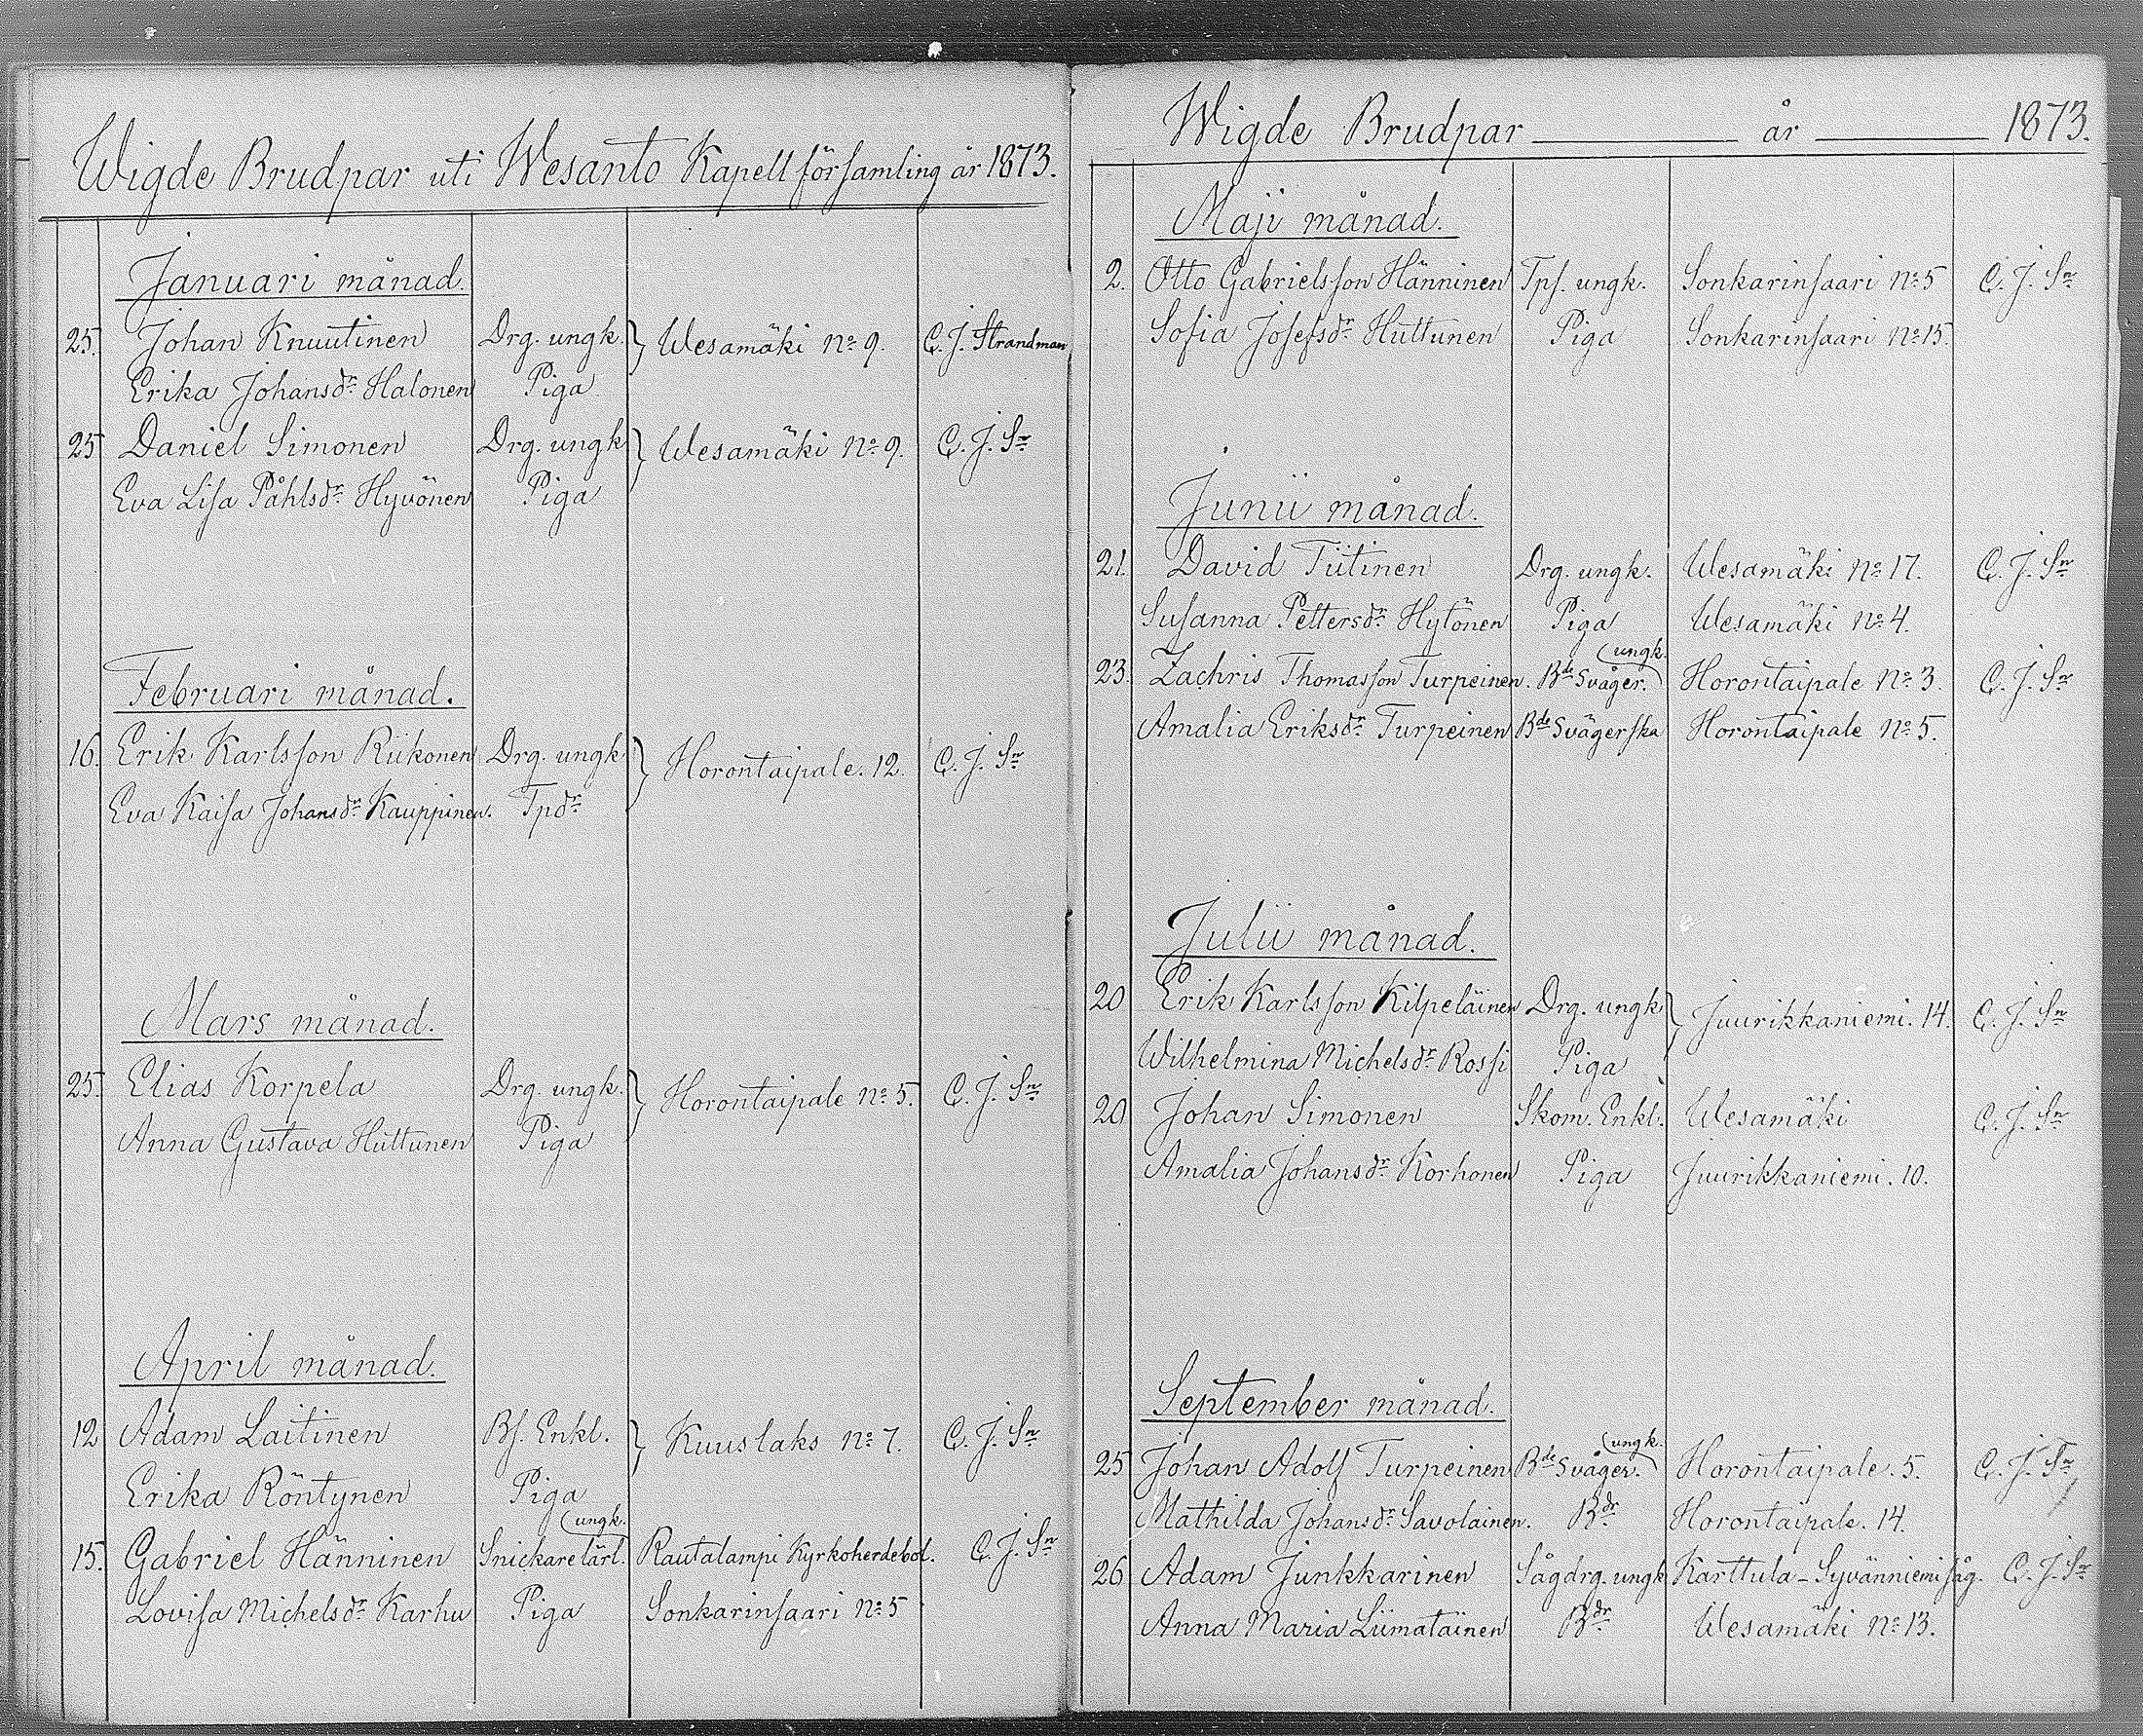 Wigde Brudpar uti Wesanto Kapellförsamling år 1873.
Januari månad.
25. Johan Knuutinen Drg. ungk. } Wesamäki No 9. C. J. Strandman
Erika Johansdr Halonen Piga
25 Daniel Simonen Drg. ungk } Wesamäki No 9. C. J. Sn
Eva Lisa Påhlsdr Hyvönen Piga
Februari månad.
16. Erik Karlsson Riikonen Drg. ungk } Horontaipale. 12. C. J. Sn
Eva Kaisa Johansdr Kauppinen. Tpdr
Mars månad.
25. Elias Korpela Drg. ungk. } Horontaipale No 5. C. J. Sn
Anna Gustava Huttunen Piga
April månad.
12 Adam Laitinen Bs. Enkl. } Kuuslaks No 7. C. J. Sn
Erika Röntynen Piga
ungk.
15. Gabriel Hänninen Snickarelärl. Rautalampi Kyrkoherdebol. C. J. Sn
Lovisa Michelsdr Karhu Piga Sonkarinsaari No 5
Wigde Brudpar år 1873.
Maji månad.
2. Otto Gabrielsson Hänninen Tps. ungk. Sonkarinsaari No 5 C. J. Sn
Sofia Josefsdr Huttunen Piga Sonkarinsaari No 15.
Junii månad.
21. David Tiitinen Drg. ungk. Wesamäki No 17. C. J. Sn
Susanna Pettersdr Hytönen Piga Wesamäki No 4.
ungk.
23. Zachris Thomasson Turpeinen. Bde Svåger. Horontaipale No 3. C. J. Sn
Amalia Eriksdr Turpeinen Bde Svägerska Horontaipale No 5.
Julii månad.
20 Erik Karlsson Kilpeläinen Drg. ungk } Juurikkaniemi. 14. C. J. Sn
Wilhelmina Michelsdr Rossi Piga
20 Johan Simonen Skom. Enkl. Wesamäki C. J. Sn
Amalia Johansdr Korhonen Piga Juurikkaniemi. 10.
September månad.
ungk.
25 Johan Adolf Turpeinen Bde Svåger. Horontaipale. 5. C. J. Sn
Mathilda Johansdr Savolainen. Bdr Horontaipale. 14.
26 Adam Junkkarinen Sågdrg. ungk Karttula-Syvänniemi såg. C. J. Sn
Anna Maria Liimatäinen Bdr Wesamäki No 13.